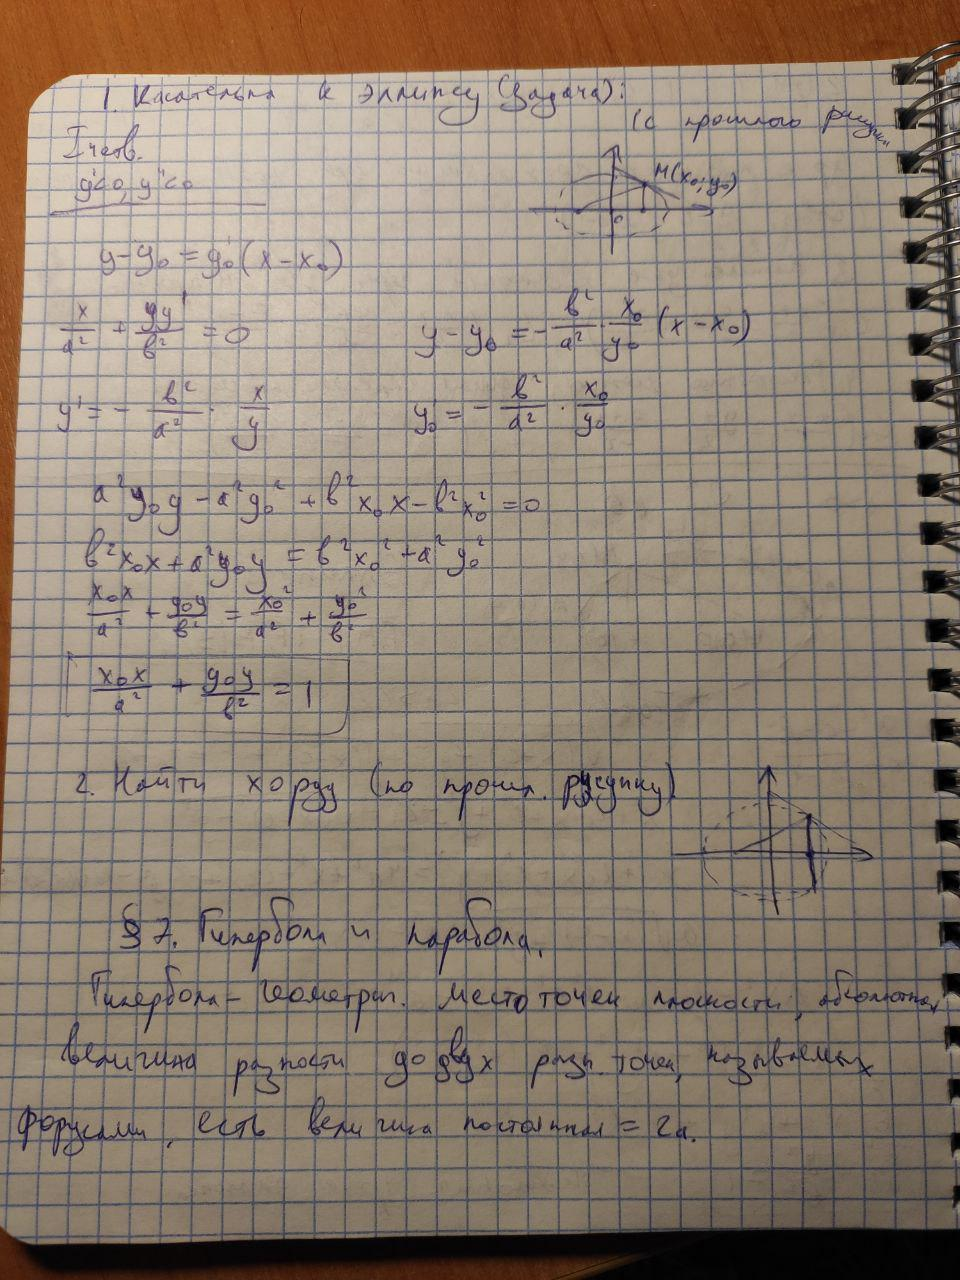 1. Касательная к эллипсу (задача):
(с прошлого рисунка
I четв.
y'<0, y''<0
M(x₀; y₀)
0
y - y₀ = y₀'(x - x₀)
x/a² + yy'/b² = 0
y - y₀ = - b²/a² · x₀/y₀ (x - x₀)
y' = - b²/a² · x/y
y₀' = - b²/a² · x₀/y₀
a²y₀y - a²y₀² + b²x₀x - b²x₀² = 0
b²x₀x + a²y₀y = b²x₀² + a²y₀²
x₀x/a² + y₀y/b² = x₀²/a² + y₀²/b²
x₀x/a² + y₀y/b² = 1
2. Найти хорду (по прошл. рисунку)
§ 7. Гипербола и парабола.
Гипербола - геометрич. место точек плоскости, абсолютная
величина разности до двух разн. точек, называемых
фокусами, есть величина постоянная = 2a.